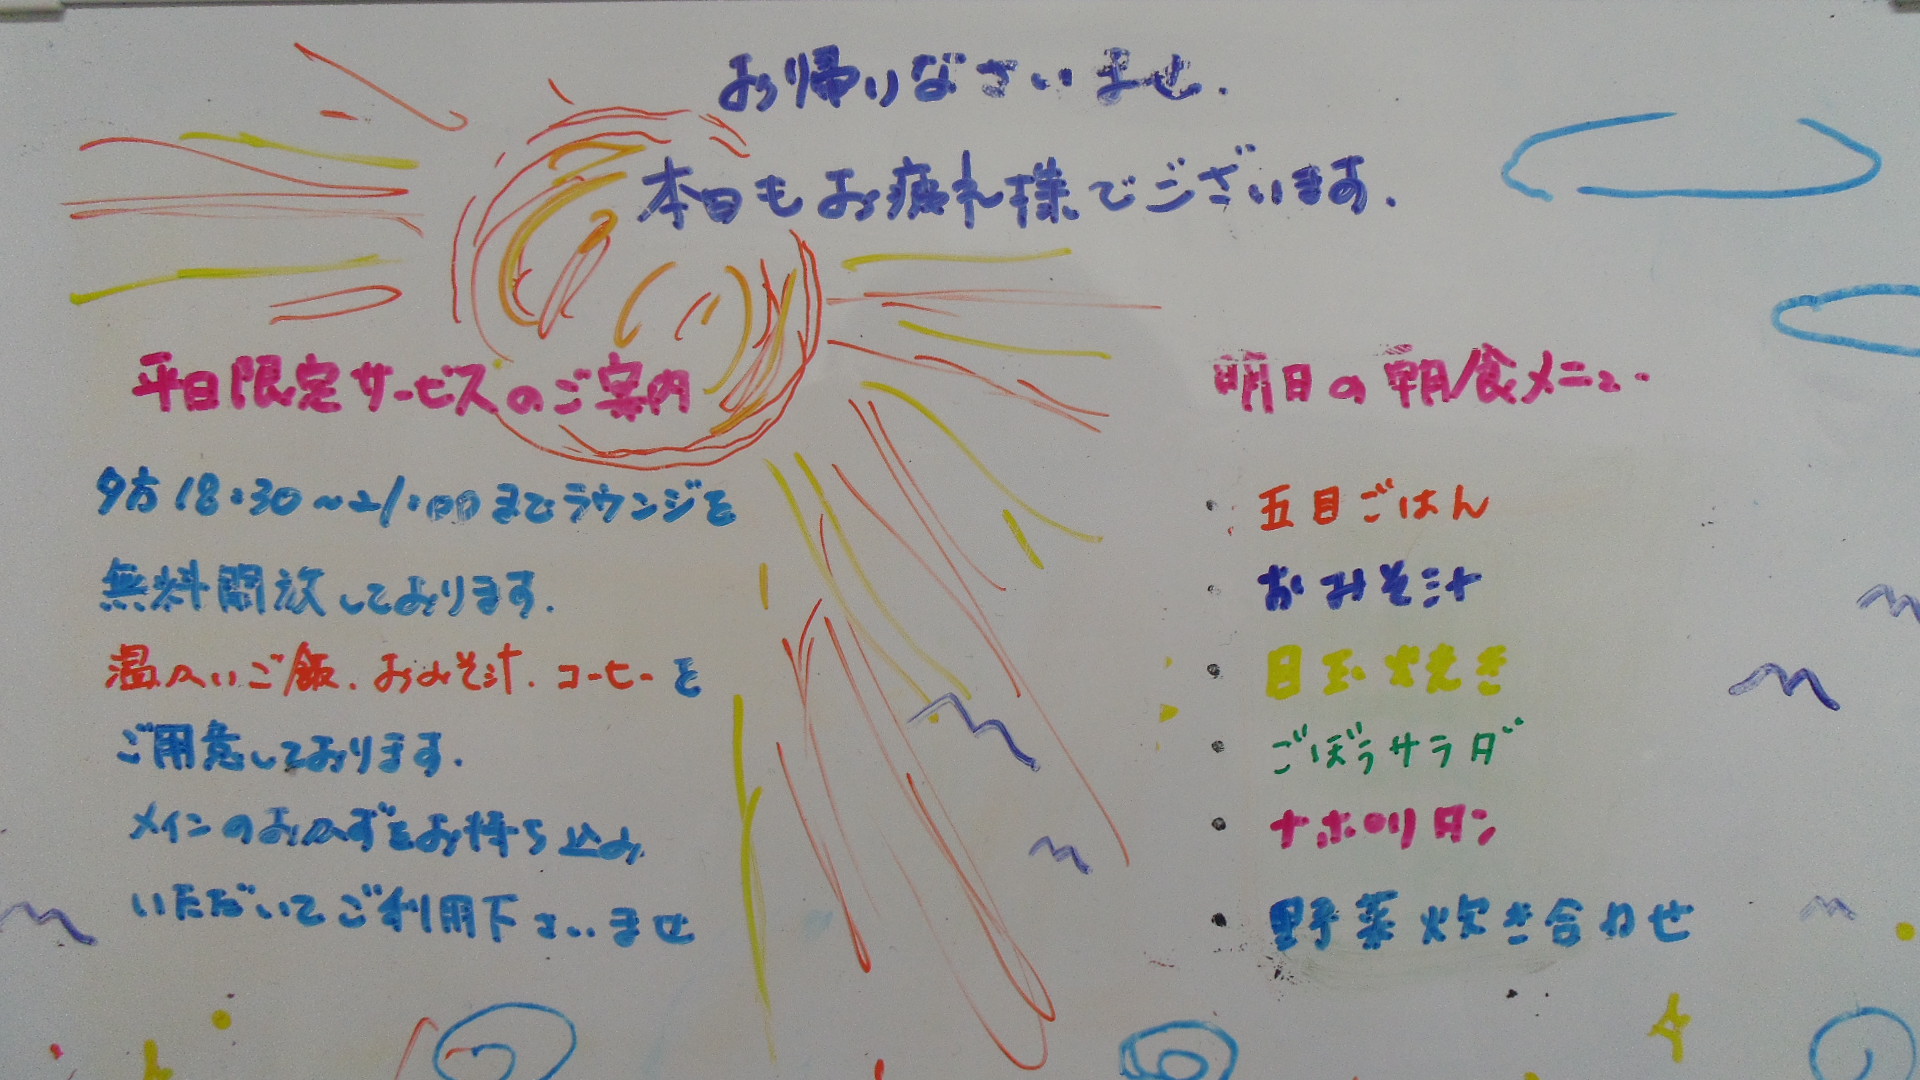 お帰りなさいませ.
本日もお疲れ様でございます.
平日限定サービスのご案内
夕方18:30~21:00までラウンジを
無料開放しております.
温かいご飯.おみそ汁.コーヒーを
ご用意しております.
メインのおかずをお持ち込み
いただいてご利用下さいませ
明日の朝食メニュー
・五目ごはん
・おみそ汁
・目玉焼き
・ごぼうサラダ
・ナポリタン
・野菜炊き合わせ